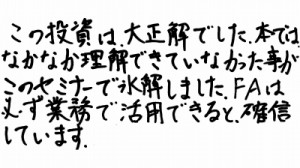 この投資は大正解でした.本では、
なかなか理解できていなかった事が
このセミナーで氷解しました.FAは
必ず業務で活用できると、確信
しています.